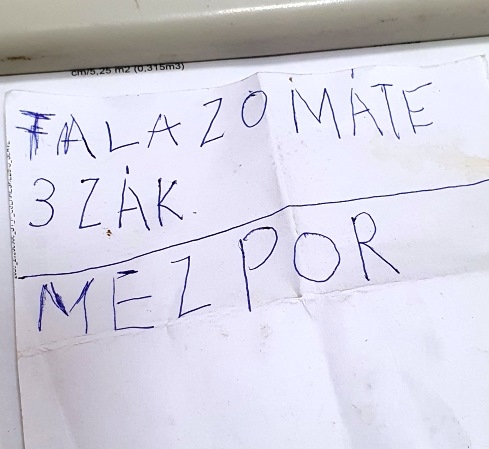 cm/5,25 m2 (0,315m3)
FALAZO MÁTE
3 ZÁK
MÉZ POR